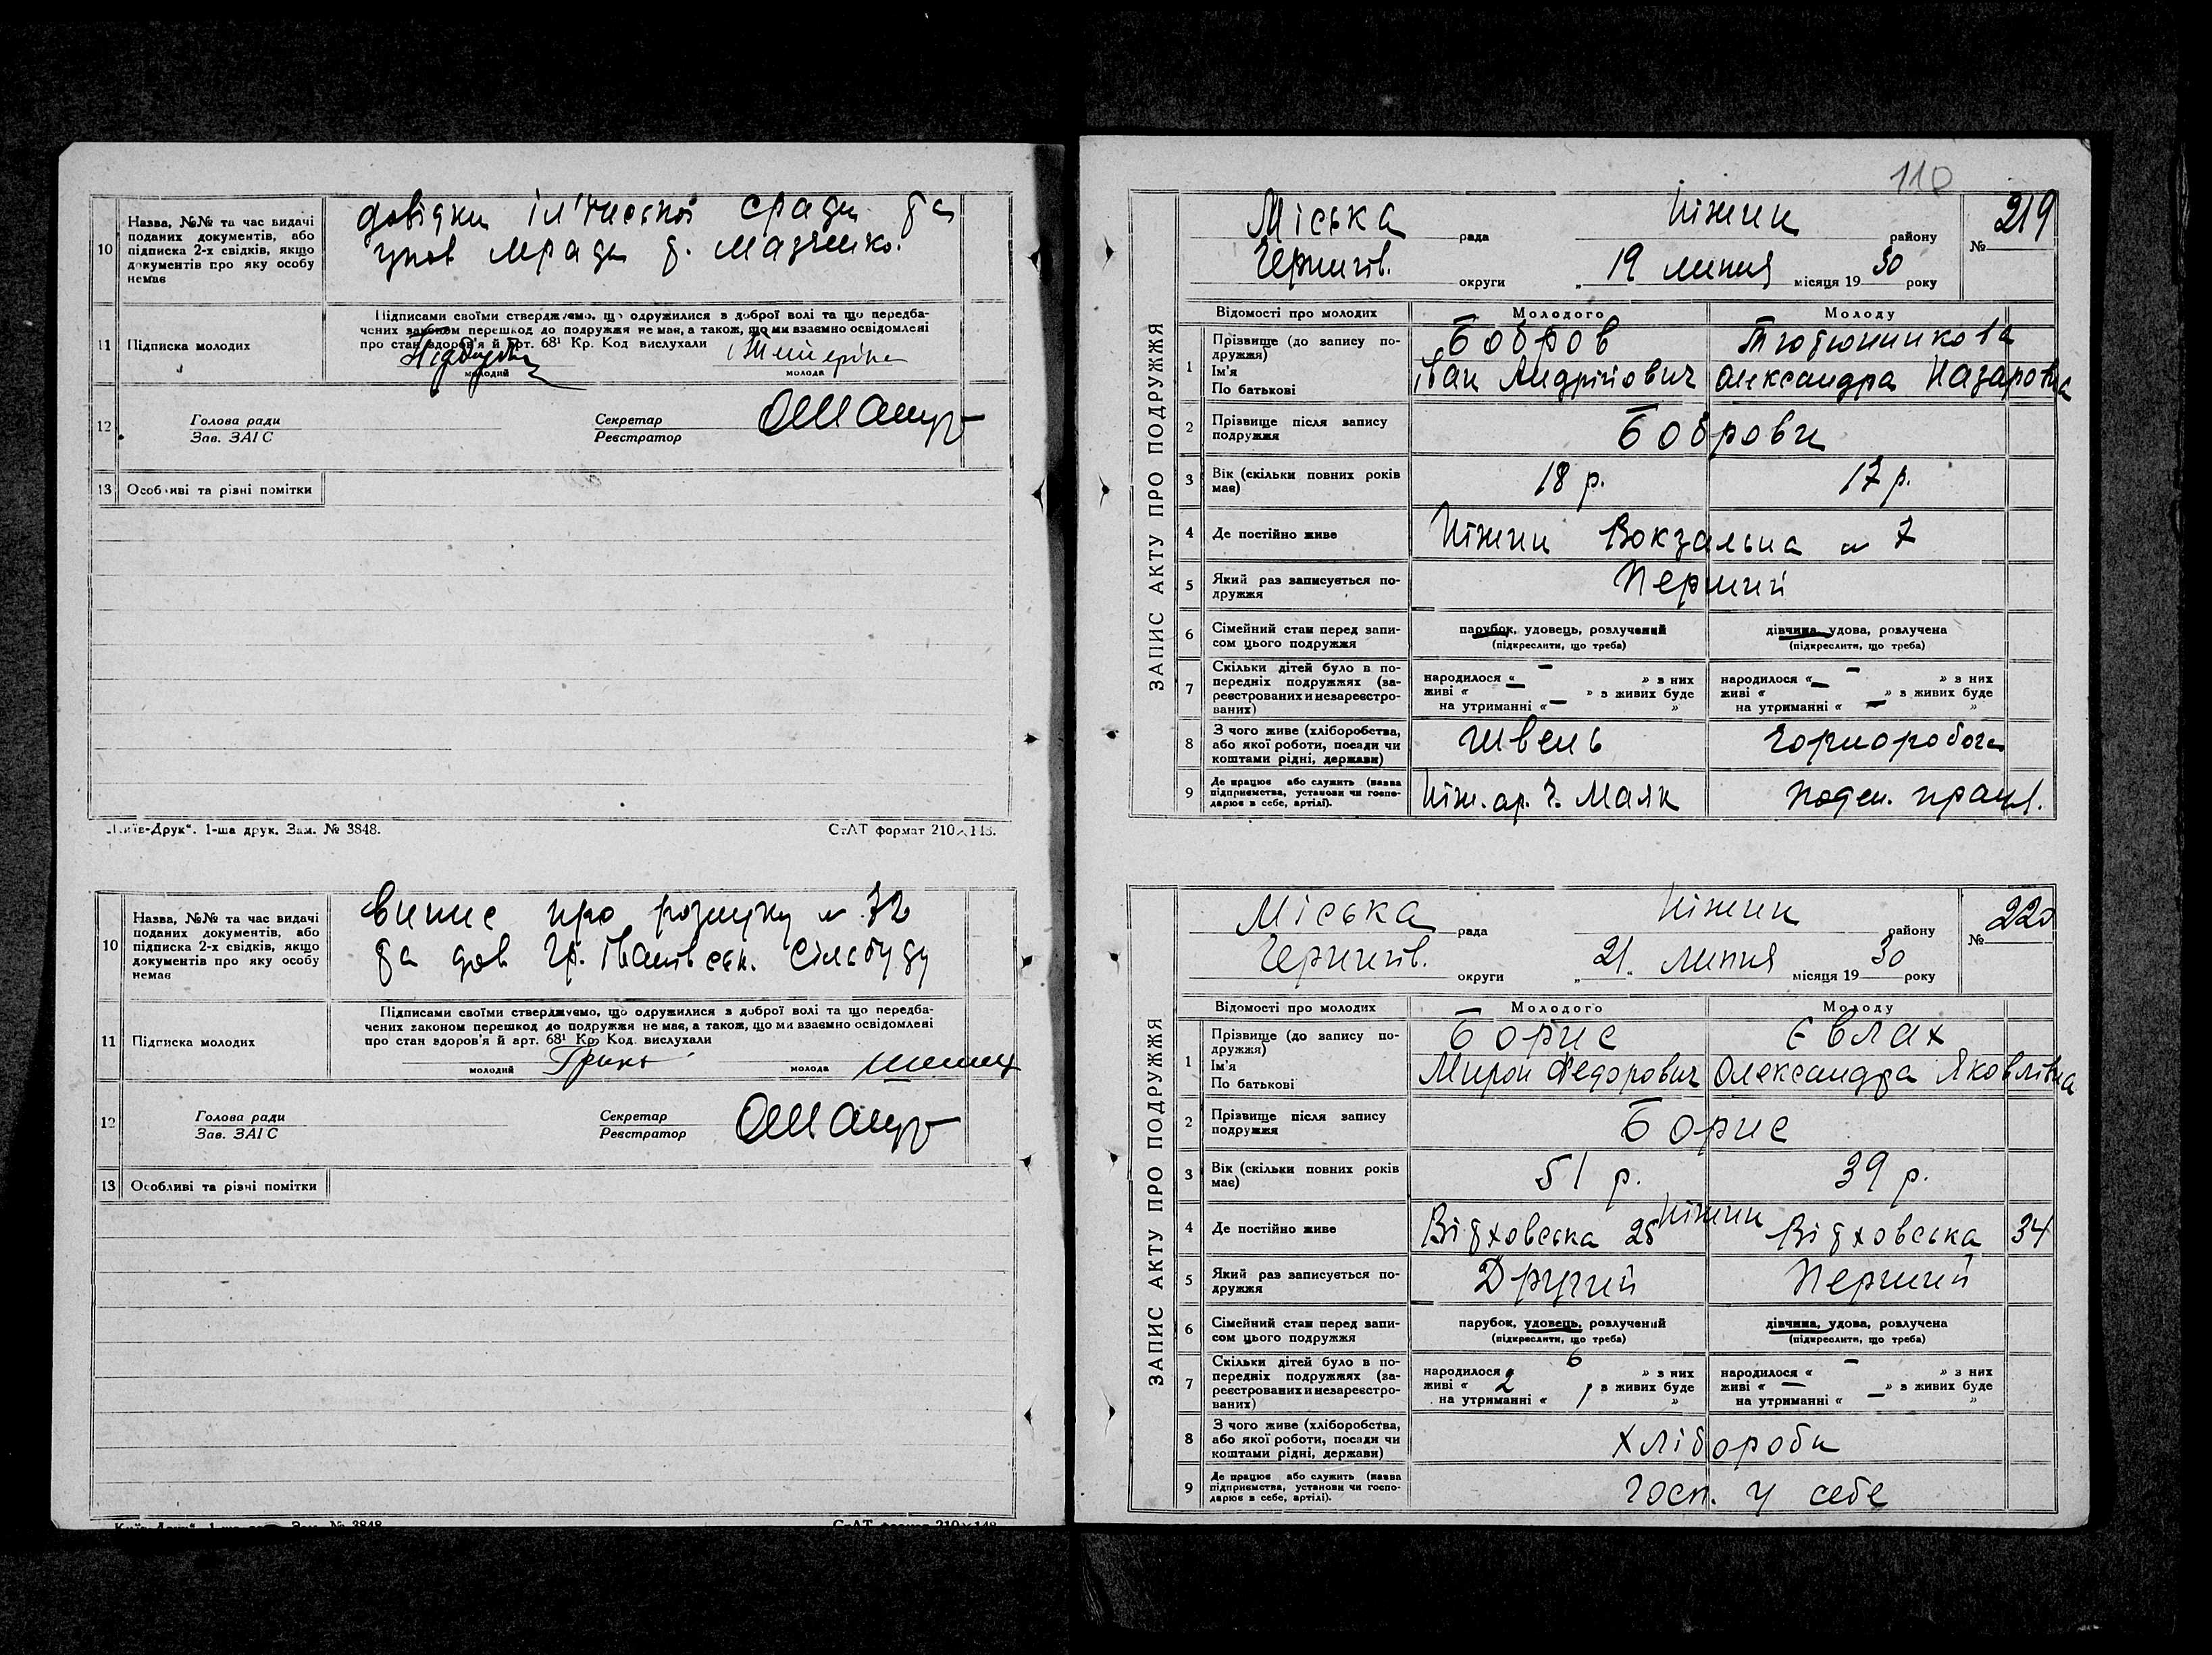 10
Назва, №№ та час видачі
поданих документів, або
підписка 2-х свідків, якщо
документів про яку особу
немає
довідки
11
Підписка молодих
Підписами своїми стверджуємо, що одружилися з доброї волі та що передба-
чених законом перешкод до подружжя не має, а також, що ми взаємно освідомлені
про стан здоров'я й арт. 68¹ Кр. Код вислухали
молодий
молода
12
Голова ради
Зав. ЗАІС
Секретар
Реєстратор
13
Особливі та різні помітки
„Київ-Друк". 1-ша друк. Зам. № 3848.
СтАТ формат 210×148.
10
Назва, №№ та час видачі
поданих документів, або
підписка 2-х свідків, якщо
документів про яку особу
немає
випис про розлуку № 72
та дов Гр. Іванівськ. сільбуду
11
Підписка молодих
Підписами своїми стверджуємо, що одружилися з доброї волі та що передба-
чених законом перешкод до подружжя не має, а також, що ми взаємно освідомлені
про стан здоров'я й арт. 68¹ Кр. Код. вислухали
молодий
молода
12
Голова ради
Зав. ЗАІС
Секретар
Реєстратор
13
Особливі та різні помітки
110
ЗАПИС АКТУ ПРО ПОДРУЖЖЯ
Міська рада Ніжин району № 219
Чернигів. округи „ 19 липня місяця 1930 року
Відомості про молодих
Молодого
Молоду
1
Прізвище (до запису по-
дружжя)
Ім'я
По батькові
Бобров
Іван Андрійович
Тютюнникова
Олександра Назаровна
2
Прізвище після запису
подружжя
Боброви
3
Вік (скільки повних років
має)
18 р.
17 р.
4
Де постійно живе
Ніжин Вокзальна № 7
5
Який раз записується по-
дружжя
Перший
6
Сімейний стан перед запи-
сом цього подружжя
парубок, удовець, розлучений
(підкреслити, що треба)
дівчина, удова, розлучена
(підкреслити, що треба)
7
Скільки дітей було в по-
передніх подружжях (за-
реєстрованих и незареєстро-
ваних)
народилося « – » з них
живі « – » з живих буде
на утриманні « – »
народилося « – » з них
живі « – » з живих буде
на утриманні « – »
8
З чого живе (хліборобства,
або якої роботи, посади чи
коштами рідні, держави)
швець
чорноробоча
9
Де працює або служить (назва
підприємства, установи чи госпо-
дарює в себе, артілі).
Ніж. ар. ч. Маяк
поден. праця.
ЗАПИС АКТУ ПРО ПОДРУЖЖЯ
Міська рада Ніжин району № 220
Чернигів. округи „ 21 „ липня місяця 1930 року
Відомості про молодих
Молодого
Молоду
1
Прізвище (до запису по-
дружжя)
Ім'я
По батькові
Борис
Мирон Федорович
Євлах
Олександра Яковлівна
2
Прізвище після запису
подружжя
Борис
3
Вік (скільки повних років
має)
51 р.
39 р.
4
Де постійно живе
Ніжин
34
5
Який раз записується по-
дружжя
Другий
Перший
6
Сімейний стан перед запи-
сом цього подружжя
парубок, удовець, розлучений
(підкреслити, що треба)
дівчина, удова, розлучена
(підкреслити, що треба)
7
Скільки дітей було в по-
передніх подружжях (за-
реєстрованих и незареєстро-
ваних)
народилося « 6 » з них
живі « 2 » з живих буде
на утриманні « 1 »
народилося « – » з них
живі « – » з живих буде
на утриманні « – »
8
З чого живе (хліборобства,
або якої роботи, посади чи
коштами рідні, держави)
хлібороби
9
Де працює або служить (назва
підприємства, установи чи госпо-
дарює в себе, артілі).
Госп. у себе